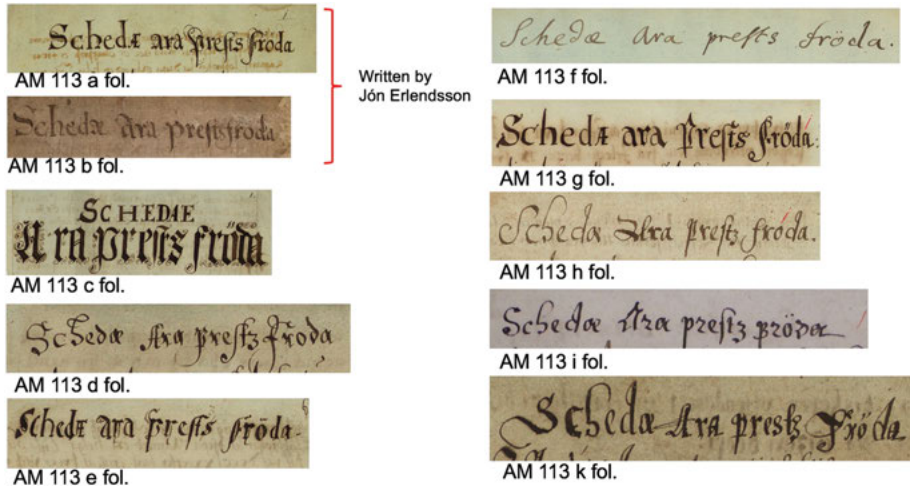 Schedæ ara Prests fröda
AM 113 a fol.
Schedæ Ara prests froda
AM 113 b fol.
Written by
Jón Erlendsson
SCHEDÆ
Ara prests fröda
AM 113 c fol.
Schedæ Ara prestz Froda
AM 113 d fol.
Schedæ ara Prests fröda.
AM 113 e fol.
Schedæ Ara prests fröda.
AM 113 f fol.
Schedæ ara Prests Fröda.
AM 113 g fol.
Schedæ Ara prestz fróda.
AM 113 h fol.
Schedæ Ara prestz
AM 113 i fol.
Schedæ Ara prestz Fröda
AM 113 k fol.